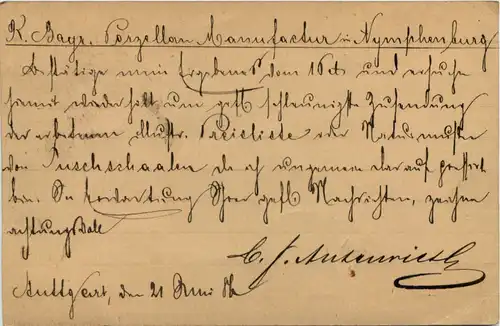 K. Bayr. Porzellan Manufactur in Nymphenburg
Bestätige mein Ergebenes vom 1 und ersuche
hiermit wiederholt um gefl. schleunigste Zusendung
der erbetenen illustr. Preisliste oder Naturmuster
von Tuschschaalen da ich ungemein darauf pressirt
bin. In Erwartung Ihrer gefl. Nachrichten, zeichne
achtungsvoll
C. F. Autenrieth
Stuttgart, den 21 Juni